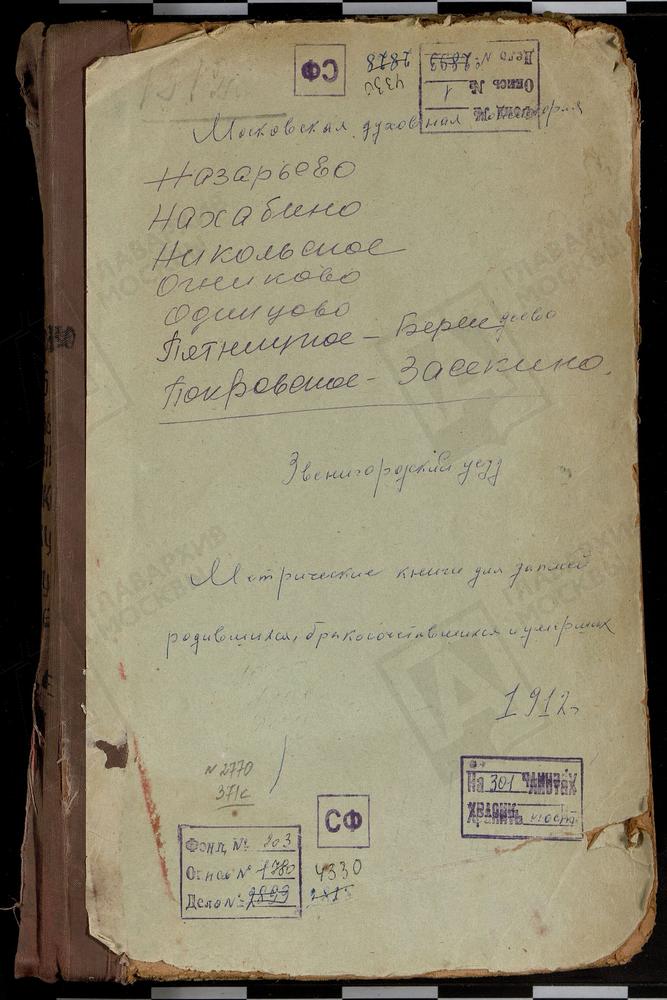 СФ
2828
4330
Дело № 2893
Опись № 1
Фонд №
Московская духовная консистория
Назарьево
Нахабино
Никольское
Огниково
Одинцово
Пятницкое - Берендеево
Покровское - Засекино.
Звенигородский уезд
Метрические книги для записей
родившихся, бракосочетавшихся и умерших
1912г
N 2770
371с
На 301
СФ
Фонд № 203
Опись № 1780
Дело № 2893
4330
ГЛАВАРХИВ
МОСКВЫ